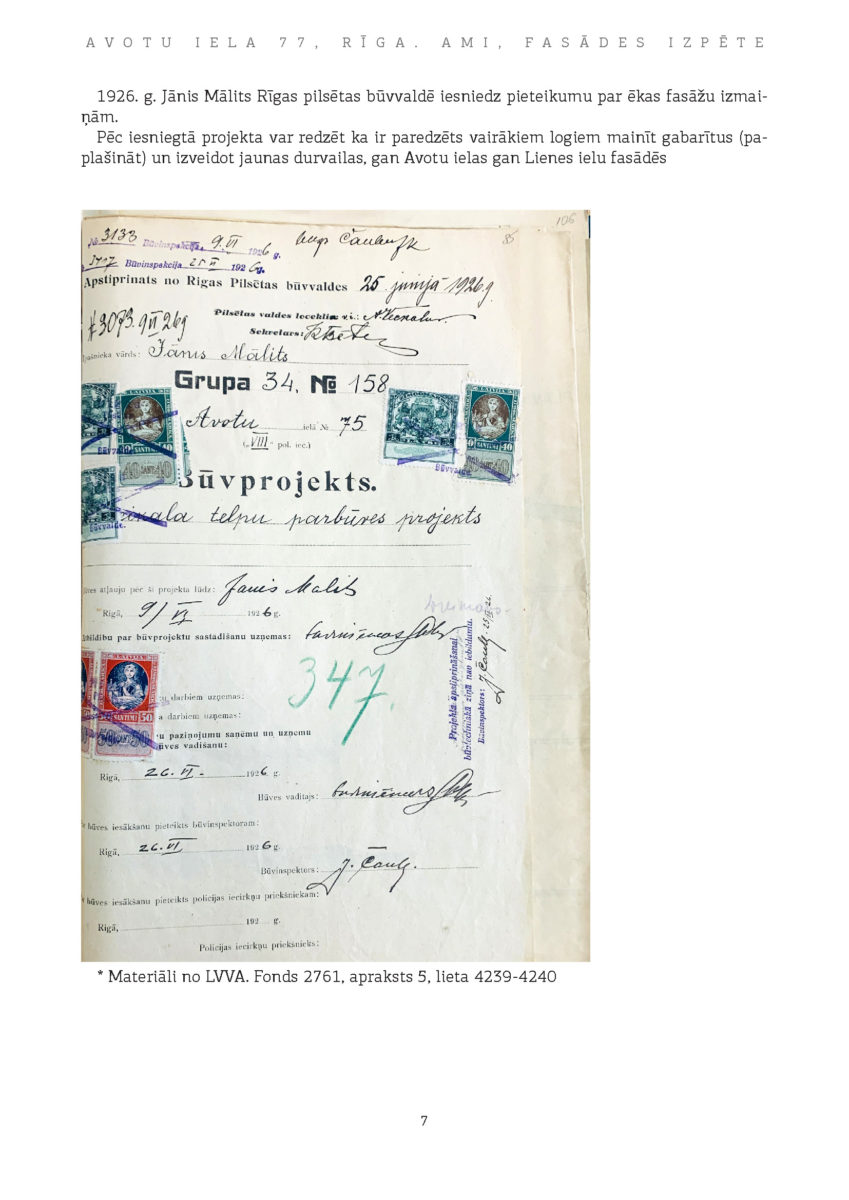 AVOTU IELA 77, RĪGA. AMI, FASĀDES IZPĒTE
1926. g. Jānis Mālits Rīgas pilsētas būvvaldē iesniedz pieteikumu par ēkas fasāžu izmai-
ņām.
Pēc iesniegtā projekta var redzēt ka ir paredzēts vairākiem logiem mainīt gabarītus (pa-
plašināt) un izveidot jaunas durvailas, gan Avotu ielas gan Lienes ielu fasādēs
106
85
№ 3133 Būvinspekcija 9.VI 1926 g.
3717 Būvinspekcija 25 VI 1926 g.
Apstiprināts no Rīgas Pilsētas būvvaldes 25 jūnijā 1926 g.
Pilsētas valdes loceklis v.i.:
#3073. 9 VI 26 g
Sekretars:
pašnieka vārds: Jānis Mālits
Grupa 34, № 158
Avotu ielā № 75
("VIII" pol. iec.)
LATVIJA
SANTIMI 40
Būvvalde.
Būvprojekts.
telpu parbūves projekts
ūves atļauju pēc šī projekta lūdz: Janis Malits
Rīgā, 9/VI 1926 g.
tbildību par būvprojektu sastādīšanu uzņemas:
347.
Projekta apstiprināšanai
būvtechniskā ziņā nav iebildumu.
Būvinspektors: J. Čaulz. 25/VI 26.
SANTIMI 50
u darbiem uzņemas:
a darbiem uzņemas:
u paziņojumu saņēmu un uzņemu
ūves vadīšanu:
Rīgā, 26.VI. 1926 g.
Būves vadītājs:
būves iesākšanu pieteikts būvinspektoram:
Rīgā, 26.VI 1926 g.
Būvinspektors: J. Čaulz.
būves iesākšanu pieteikts policijas iecirkņu priekšniekam:
Rīgā, 192 g.
Policijas iecirkņu priekšnieks:
* Materiāli no LVVA. Fonds 2761, apraksts 5, lieta 4239-4240
7